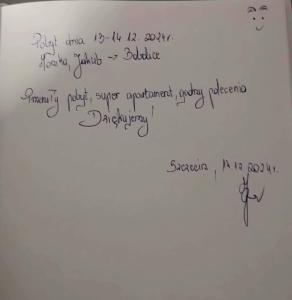 Pobyt dnia 13-14.12.2024r.
Jakub → Bobolice
Przemiły pobyt, super apartament, godny polecenia
Dziękujemy!
Szczecin, 14.12.2024r.